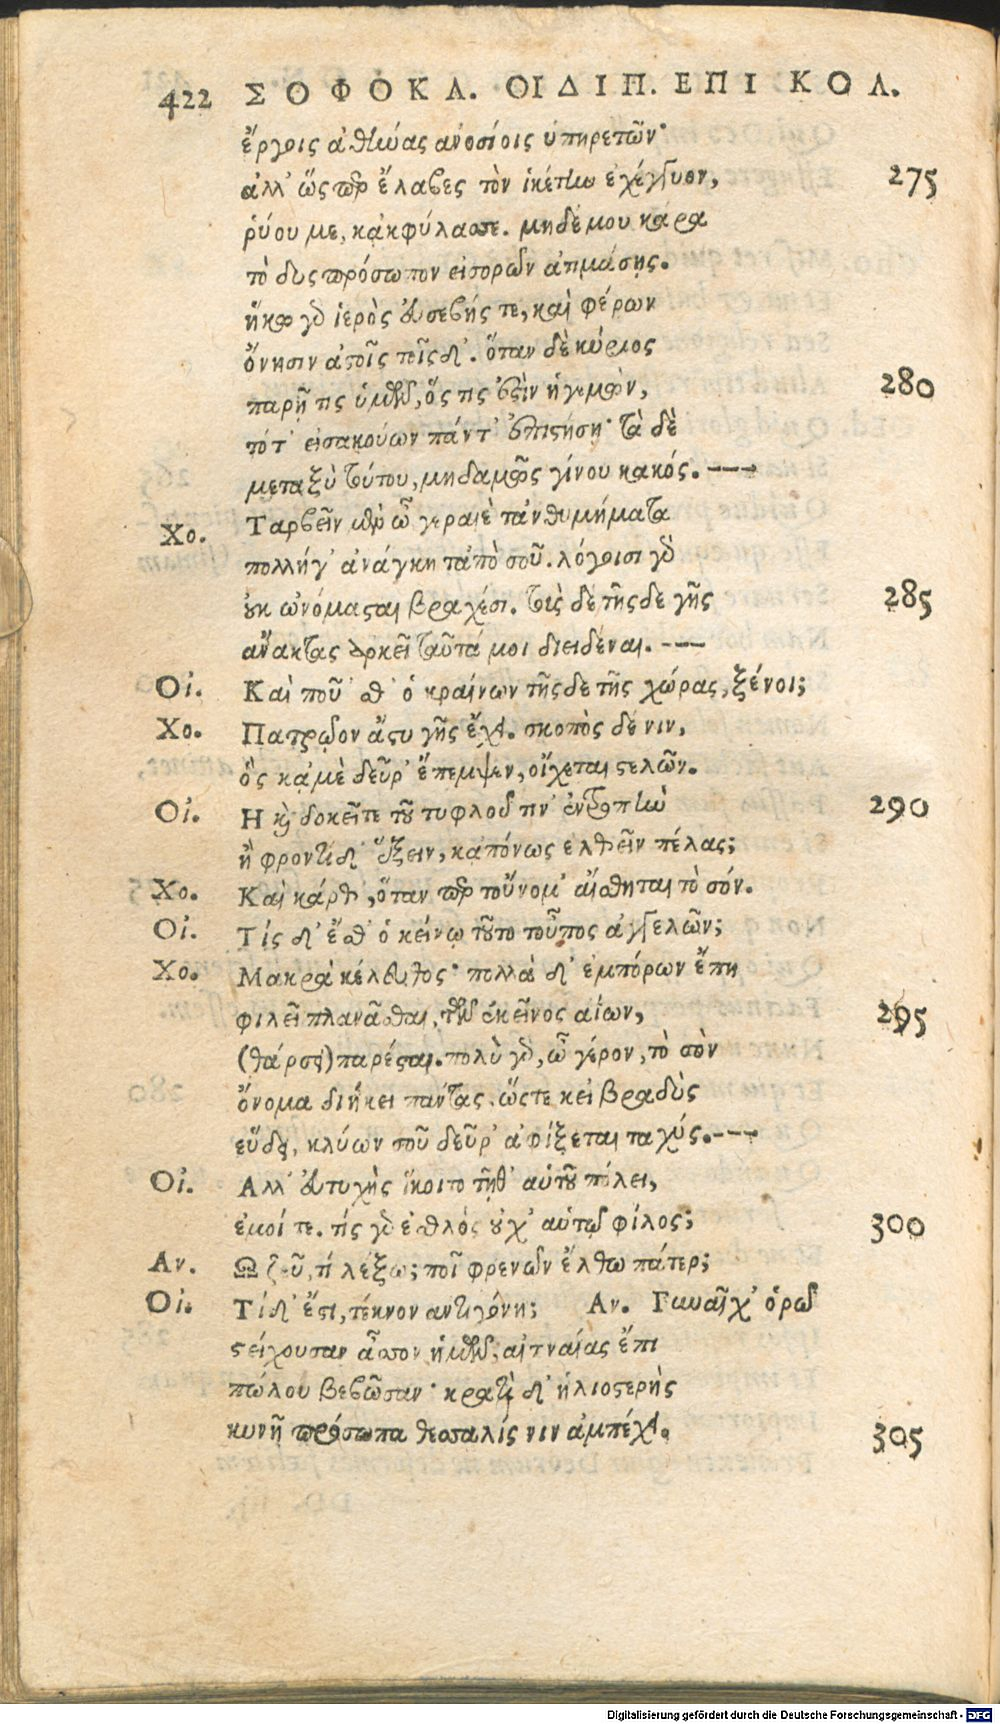 422 ΣΟΦΟΚΛ. ΟΙΔΙΠ. ΕΠΙ ΚΟΛ.
ἔργοις ἀθῴας ἀνοσίοις ὑπηρετῶν·
ἀλλ' ὥσπερ ἔλαβες τὸν ἱκέτην ἐχέγγυον, 275
ῥύου με, κἀκφύλασσε. μηδέ μου κάρα
τὸ δυσπρόσωπον εἰσορῶν ἀτιμάσῃς.
ἥκω γὰρ ἱερὸς εὐσεβής τε, καὶ φέρων
ὄνησιν ἀστοῖς τοῖς δ'. ὅταν δὲ κύριος
παρῇ τις ὑμῶν, ὅς τις ἐστὶν ἡγεμὼν, 280
τότ' εἰσακούων πάντ' ἐπιστήσῃ· τὰ δὲ
μεταξὺ τούτου, μηδαμῶς γίνου κακός. ---
Χο. Ταρβεῖν μὲν ὦ γεραιὲ τἀνθυμήματα
πολλή γ' ἀνάγκη τἀπὸ σοῦ. λόγοισι γὰρ
οὐκ ὠνόμασται βραχέσι. τοὺς δὲ τῆςδε γῆς 285
ἄνακτας ἀρκεῖ ταῦτά μοι διειδέναι. ---
Οἰ. Καὶ ποῦ 'σθ' ὁ κραίνων τῆςδε τῆς χώρας, ξένοι;
Χο. Πατρῷον ἄστυ γῆς ἔχει. σκοπὸς δέ νιν,
ὃς κἀμὲ δεῦρ' ἔπεμψεν, οἴχεται στελῶν.
Οἰ. Η καὶ δοκεῖτε τοῦ τυφλοῦ τιν' ἐντροπὴν 290
ἢ φροντίδ' ἕξειν, κἀπόνως ἐλθεῖν πέλας;
Χο. Καὶ κάρθ', ὅταν περ τοὔνομ' αἴσθηται τὸ σόν.
Οἰ. Τίς δ' ἔσθ' ὁ κείνῳ τοῦτο τοὖπος ἀγγελῶν;
Χο. Μακρὰ κέλευθος· πολλὰ δ' ἐμπόρων ἔπη
φιλεῖ πλανᾶσθαι, τῶν ἐκεῖνος αἴων, 295
(θάρσει) παρέσται. πολὺ γὰρ, ὦ γέρον, τὸ σὸν
ὄνομα διήκει πάντας. ὥστε κεἰ βραδὺς
εὕδει, κλύων σοῦ δεῦρ' ἀφίξεται ταχύς. ---
Οἰ. Αλλ' εὐτυχὴς ἵκοιτο τῇθ' αὑτοῦ πόλει,
ἐμοί τε. τίς γὰρ ἐσθλὸς οὐχ' αὑτῷ φίλος; 300
Αν. Ω ζεῦ, τί λέξω; ποῖ φρενῶν ἔλθω πάτερ;
Οἰ. Τί δ' ἔστι, τέκνον ἀντιγόνη; Αν. Γυναῖχ' ὁρῶ
στείχουσαν ἆσσον ἡμῶν, αἰτναίας ἔπι
πώλου βεβῶσαν· κρατὶ δ' ἡλιοστερὴς
κυνῆ πρόσωπα θεσσαλίς νιν ἀμπέχει. 305
Digitalisierung gefördert durch die Deutsche Forschungsgemeinschaft - DFG